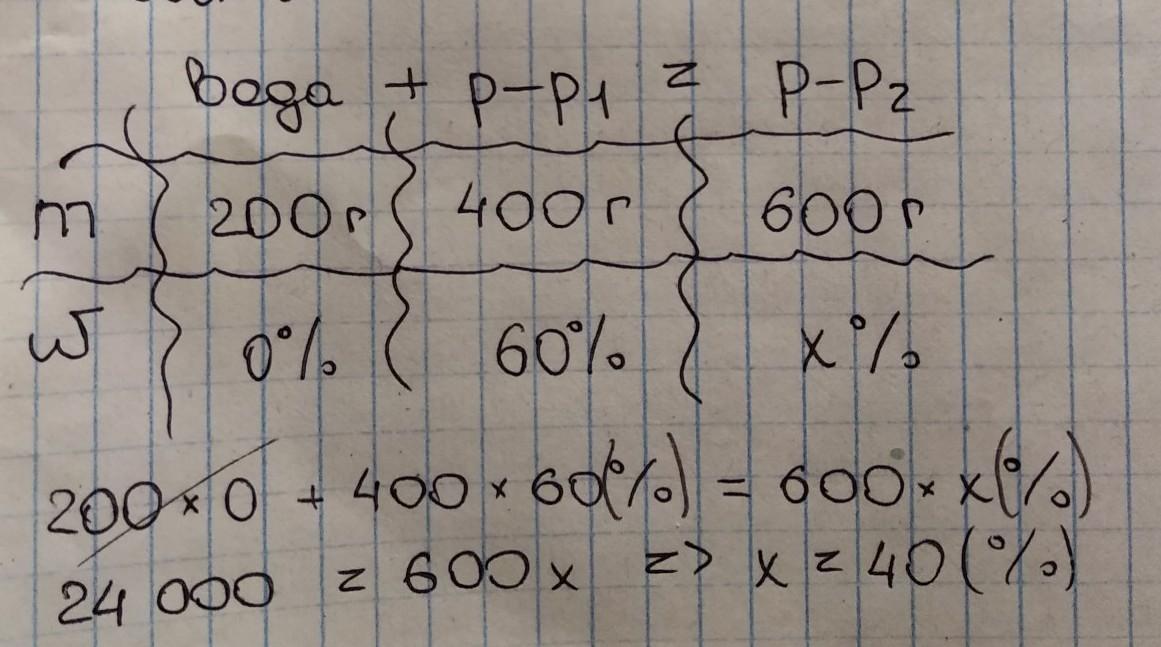 Вода + р-р1 = р-р2
m 200г 400г 600г
ω 0% 60% x%
200 × 0 + 400 × 60(%) = 600 × x(%)
24 000 = 600x => x = 40(%)